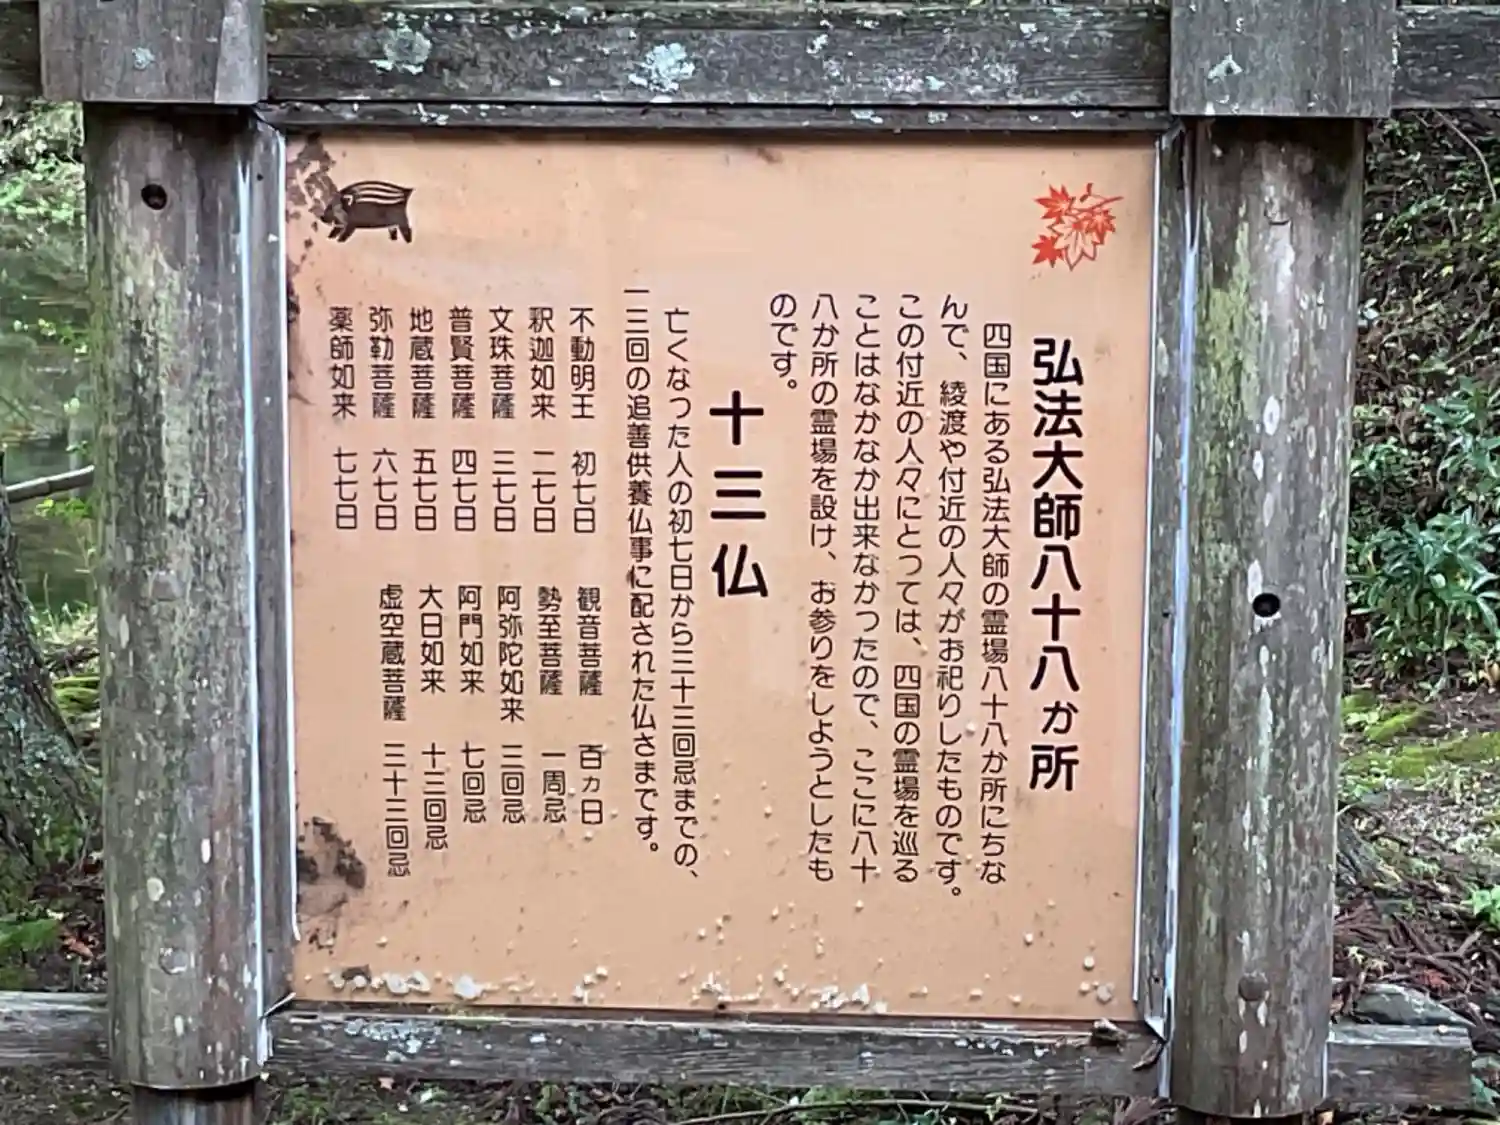 弘法大師八十八か所
四国にある弘法大師の霊場八十八か所にちな
んで、綾渡や付近の人々がお祀りしたものです。
この付近の人々にとっては、四国の霊場を巡る
ことはなかなか出来なかったので、ここに八十
八か所の霊場を設け、お参りをしようとしたも
のです。
十三仏
亡くなった人の初七日から三十三回忌までの、
一三回の追善供養仏事に配された仏さまです。
不動明王 初七日 観音菩薩 百ヵ日
釈迦如来 二七日 勢至菩薩 一周忌
文珠菩薩 三七日 阿弥陀如来 三回忌
普賢菩薩 四七日 阿門如来 七回忌
地蔵菩薩 五七日 大日如来 十三回忌
弥勒菩薩 六七日 虚空蔵菩薩 三十三回忌
薬師如来 七七日